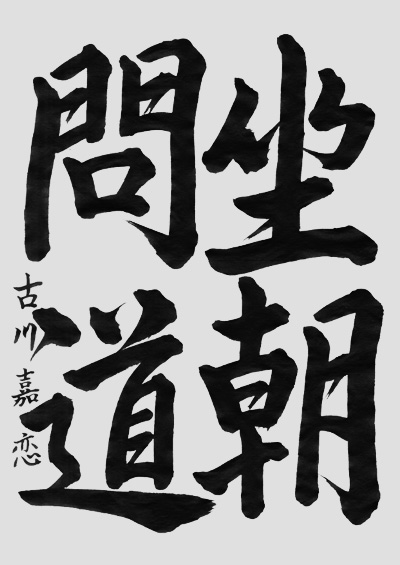 坐朝
問道
古川嘉恋